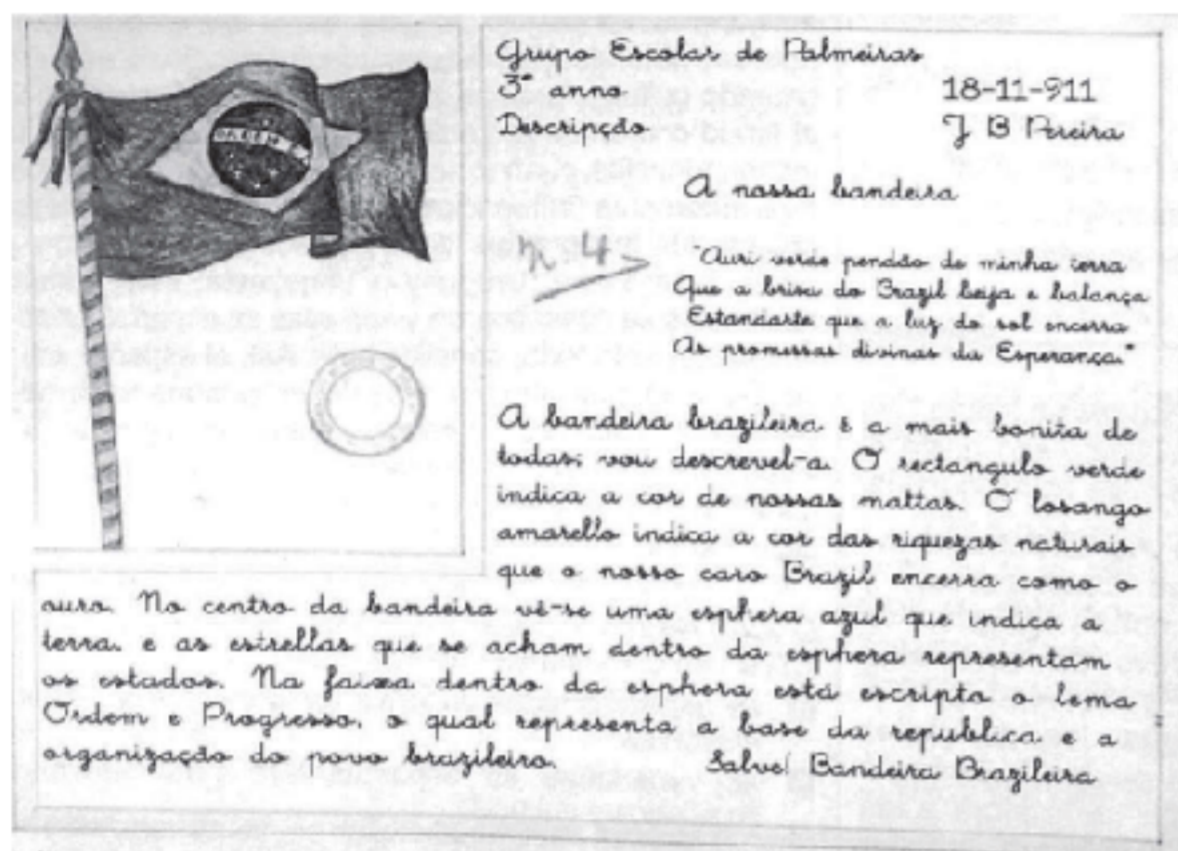 Grupo Escolar de Palmeiras
3º anno 18-11-911
Descripção J B Pereira
A nossa bandeira
"Auri verde pendão de minha terra
Que a brisa do Brazil beija e balança
Estandarte que a luz do sol encerra
As promessas divinas da Esperança."
A bandeira brazileira é a mais bonita de
todas; vou descrevel-a. O rectangulo verde
indica a cor de nossas mattas. O losango
amarello indica a cor das riquezas naturais
que o nosso caro Brazil encerra como o
ouro. No centro da bandeira vê-se uma esphera azul que indica a
terra, e as estrellas que se acham dentro da esphera representam
os estados. Na faixa dentro da esphera está escripto o lema
Ordem e Progresso, o qual representa a base da republica e a
organização do povo brazileiro. Salve! Bandeira Brazileira